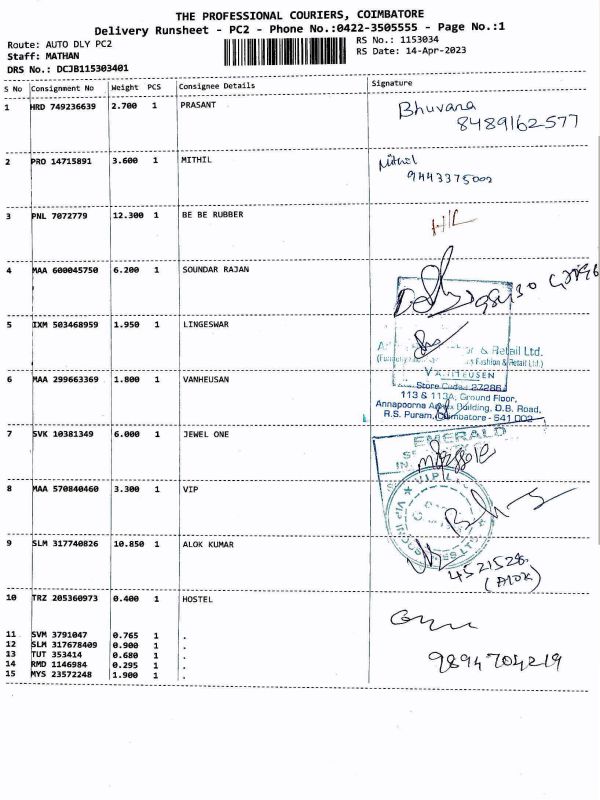 THE PROFESSIONAL COURIERS, COIMBATORE
Delivery Runsheet - PC2 - Phone No.:0422-3505555 - Page No.:1
Route: AUTO DLY PC2 RS No.: 1153034
Staff: MATHAN RS Date: 14-Apr-2023
DRS No.: DCJB115303401
S No Consignment No Weight PCS Consignee Details Signature
1 HRD 749236639 2.700 1 PRASANT Bhuvana
8489162577
2 PRO 14715891 3.600 1 MITHIL Mithil
9443375002
3 PNL 7072779 12.300 1 BE BE RUBBER H/C
4 MAA 600045750 6.200 1 SOUNDAR RAJAN
5 IXM 503468959 1.950 1 LINGESWAR
& Retail Ltd.
Fashion & Retail Ltd.)
6 MAA 299663369 1.800 1 VANHEUSAN VANHEUSEN
Store Code: 27286
113 & 113A, Ground Floor,
Annapoorna Building, D.B. Road,
R.S. Puram, Coimbatore - 641 002
7 SVK 10381349 6.000 1 JEWEL ONE EMERALD
8 MAA 570840460 3.300 1 VIP V.I.P
9 SLM 317740826 10.850 1 ALOK KUMAR
4521528
(Alok)
10 TRZ 205360973 0.400 1 HOSTEL
11 SVM 3791047 0.765 1 .
12 SLM 317678409 0.900 1 .
13 TUT 353414 0.680 1 .
14 RMD 1146984 0.295 1 . 9894704219
15 MYS 23572248 1.900 1 .